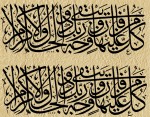 كل من عليها فان ويبقى وجه ربك ذو الجلال والإكرام
كل من عليها فان ويبقى وجه ربك ذو الجلال والإكرام